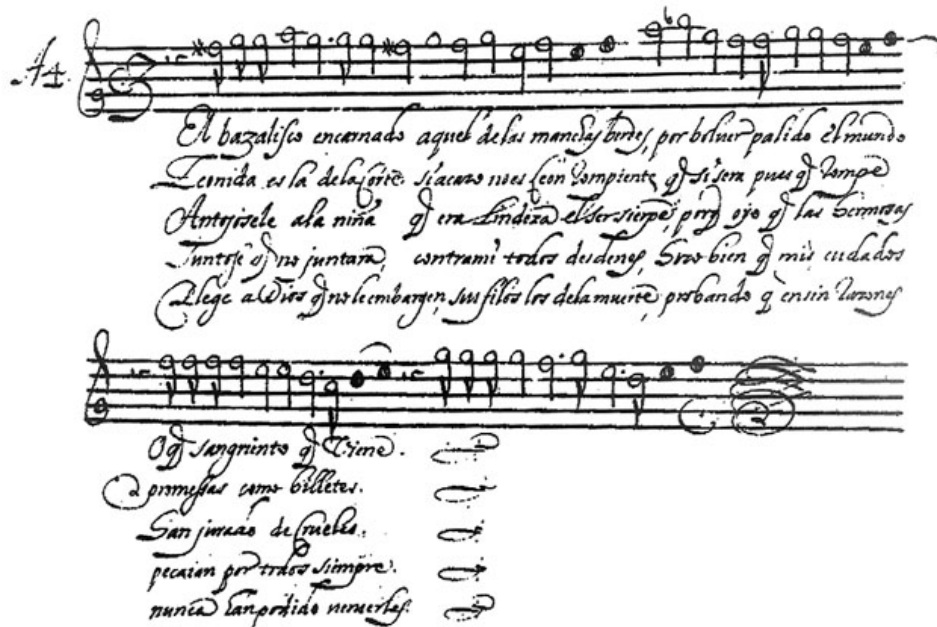 A4.
El bazalisco encarnado aquel de las manchas berdes, por bolver palido el mundo
Tenida es la de la Corte. si acaso no es leon rompiente q̃ si sera pues q̃ rompe
Antojósele a la niña q̃ era lindeza el ser sierpe, porq̃ oyo q̃ las hermosas
Juntose q̃ no juntara, contra mi todos desdenes, bien q̃ mis cuidados
Plege a Dios q̃ no le embargen, sus filos los de la muerte, probando q̃ en sin razones
O q̃ sangriento q̃ viene.
promessas como billetes.
han jurado de crueles.
pecaian por todos siempre.
nunca han podido